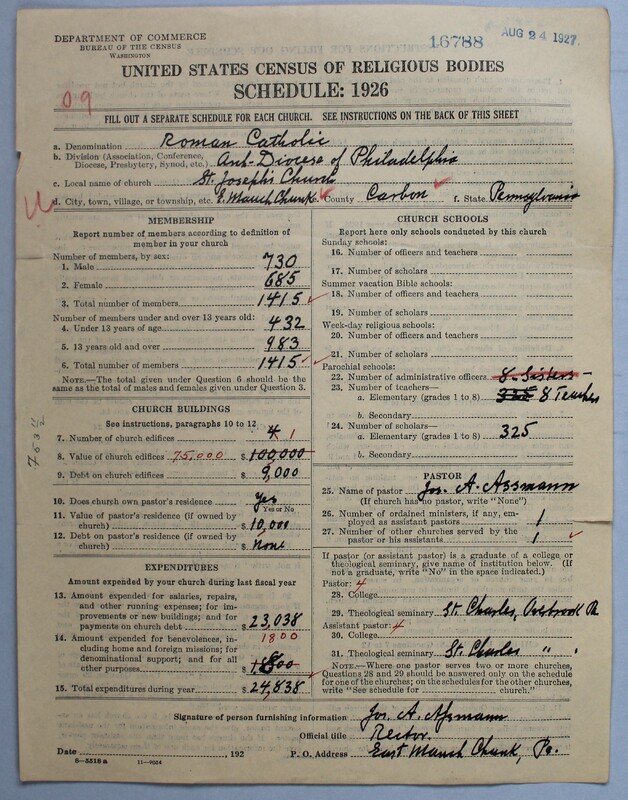 DEPARTMENT OF COMMERCE
BUREAU OF THE CENSUS
WASHINGTON
16788
AUG 24 1927
UNITED STATES CENSUS OF RELIGIOUS BODIES
SCHEDULE: 1926
09
FILL OUT A SEPARATE SCHEDULE FOR EACH CHURCH. SEE INSTRUCTIONS ON THE BACK OF THIS SHEET
a. Denomination Roman Catholic
b. Division (Association, Conference, Diocese, Presbytery, Synod, etc.) Arch-Diocese of Philadelphia
c. Local name of church St. Joseph's Church
d. City, town, village, or township, etc. E. Mauch Chunk e. County Carbon f. State Pennsylvania
MEMBERSHIP
Report number of members according to definition of member in your church
Number of members, by sex:
1. Male 730
2. Female 685
3. Total number of members 1415
Number of members under and over 13 years old:
4. Under 13 years of age 432
5. 13 years old and over 983
6. Total number of members 1415
NOTE.—The total given under Question 6 should be the same as the total of males and females given under Question 3.
CHURCH BUILDINGS
See instructions, paragraphs 10 to 12
7. Number of church edifices 4 1
8. Value of church edifices 75,000 $ 100,000
9. Debt on church edifices $ 9,000
10. Does church own pastor's residence Yes
Yes or No
11. Value of pastor's residence (if owned by church) $ 10,000
12. Debt on pastor's residence (if owned by church) $ None
EXPENDITURES
Amount expended by your church during last fiscal year
13. Amount expended for salaries, repairs, and other running expenses; for improvements or new buildings; and for payments on church debt $ 23,038
14. Amount expended for benevolences, including home and foreign missions; for denominational support; and for all other purposes 1800 $ 1800
15. Total expenditures during year $ 24,838
CHURCH SCHOOLS
Report here only schools conducted by this church
Sunday schools:
16. Number of officers and teachers
17. Number of scholars
Summer vacation Bible schools:
18. Number of officers and teachers
19. Number of scholars
Week-day religious schools:
20. Number of officers and teachers
21. Number of scholars
Parochial schools:
22. Number of administrative officers 8 Sisters
23. Number of teachers—
a. Elementary (grades 1 to 8) 325 8 Teachers
b. Secondary
24. Number of scholars—
a. Elementary (grades 1 to 8) 325
b. Secondary
PASTOR
25. Name of pastor Jos. A. Assmann
(If church has no pastor, write "None")
26. Number of ordained ministers, if any, employed as assistant pastors 1
27. Number of other churches served by the pastor or his assistants 1
If pastor (or assistant pastor) is a graduate of a college or theological seminary, give name of institution below. (If not a graduate, write "No" in the space indicated.)
Pastor: 4
28. College
29. Theological seminary St. Charles, Overbrook Pa
Assistant pastor: 4
30. College
31. Theological seminary St. Charles " "
NOTE.—Where one pastor serves two or more churches, Questions 28 and 29 should be answered only on the schedule for one of the churches; on the schedules for the other churches, write "See schedule for church."
Signature of person furnishing information Jos. A. Assmann
Official title Rector
Date , 192 P. O. Address East Mauch Chunk, Pa.
8—5518 a 11—8654